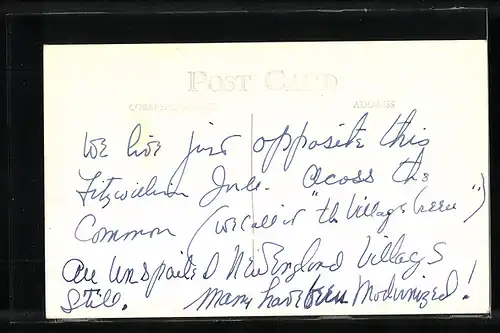 POST CARD
CORRESPONDENCE ADDRESS
We live just opposite this
Fitzwilliam Inn. Acoss the
Common (we call it "the Village Green")
An Unspoiled New England Village
Still. Many have been Modernized!